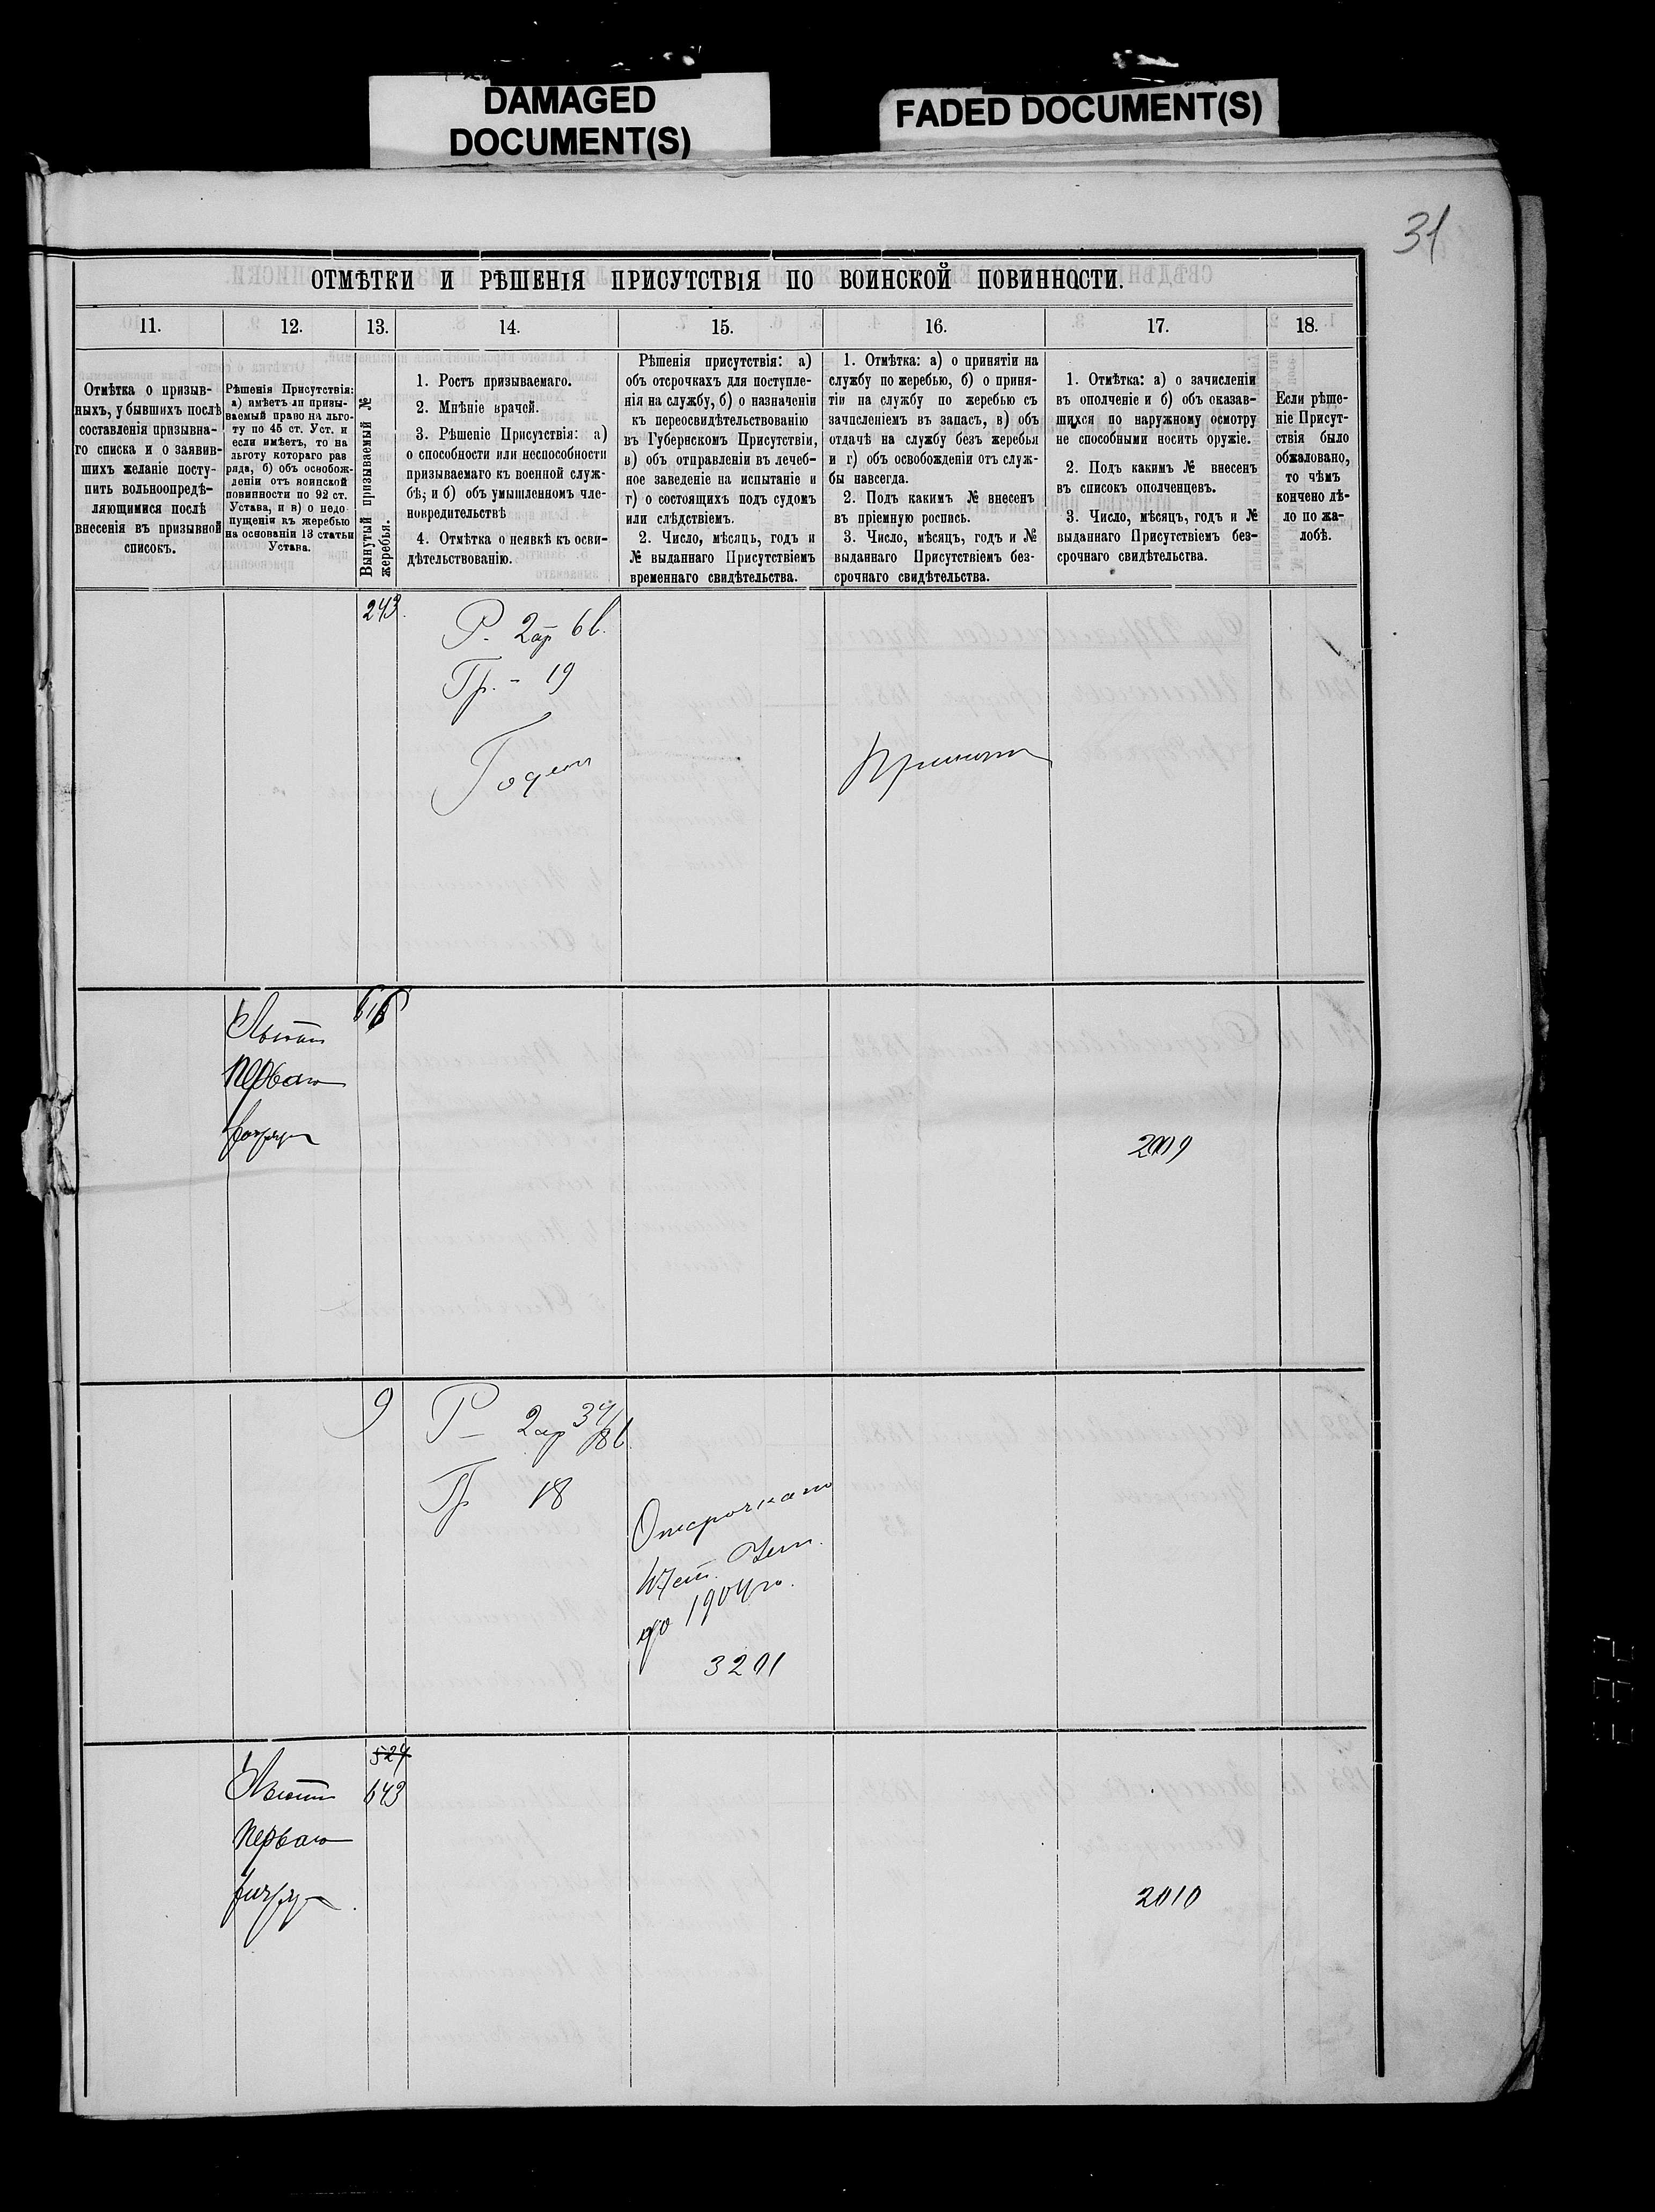 DAMAGED
DOCUMENT(S)
FADED DOCUMENT(S)
31
ОТМѢТКИ И РѢШЕНІЯ ПРИСУТСТВІЯ ПО ВОИНСКОЙ ПОВИННОСТИ.
11.
12.
13.
14.
15.
16.
17.
18.
Отмѣтка о призыв-
ныхъ, убывшихъ послѣ
составленія призывна-
го списка и о заявив-
шихъ желаніе посту-
пить вольноопредѣ-
ляющимися послѣ
внесенія въ призывной
списокъ.
Рѣшенія Присутствія:
а) имѣетъ ли призы-
ваемый право на льго-
ту по 45 ст. Уст. и
если имѣетъ, то на
льготу котораго раз
ряда, б) объ освобож-
деніи отъ воинской
повинности по 92 ст.
Устава, и в) о недо
пущеніи къ жеребью
на основаніи 13 статьи
Устава.
Вынутый призываемый №
жеребья.
1. Ростъ призываемаго.
2. Мнѣніе врачей.
3. Рѣшеніе Присутствія: а)
о способности или неспособности
призываемаго къ военной служ-
бѣ; и б) объ умышленномъ чле-
новредительствѣ
4. Отмѣтка о неявкѣ къ осви-
дѣтельствованію.
Рѣшенія присутствія: а)
объ отсрочкахъ для поступле-
нія на службу, б) о назначеніи
къ переосвидѣтельствованію
въ Губернскомъ Присутствіи,
в) объ отправленіи въ лечеб-
ное заведеніе на испытаніе и
г) о состоящихъ подъ судомъ
или слѣдствіемъ.
2. Число, мѣсяцъ, годъ и
№ выданнаго Присутствіемъ
временнаго свидѣтельства.
1. Отмѣтка: а) о принятіи на
службу по жеребью, б) о приня-
тіи на службу по жеребью съ
зачисленіемъ въ запасъ, в) объ
отдачѣ на службу безъ жеребья
и г) объ освобожденіи отъ служ-
бы навсегда.
2. Подъ какимъ № внесенъ
въ пріемную роспись.
3. Число, мѣсяцъ, годъ и №
выданнаго Присутствіемъ без-
срочнаго свидѣтельства.
1. Отмѣтка: а) о зачисленіи
въ ополченіе и б) объ оказав-
шихся по наружному осмотру
не способными носить оружіе.
2. Подъ какимъ № внесенъ
въ списокъ ополченцевъ.
3. Число, мѣсяцъ, годъ и №
выданнаго Присутствіемъ без-
срочнаго свидѣтельства.
Если рѣше-
ніе Присут-
ствія было
обжаловано,
то чѣмъ
кончено дѣ-
ло по жа-
лобѣ.
243.
Р. 2ар 6 в.
Гр. - 19
Годен
Принят
616
Льгота
перваго
разряда
2009
9
Р - 2ар 3 4/8 в.
Гр 18
Отсрочкано
до 1904 го.
3201
527
643
Льгота
перваго
разряда.
2010